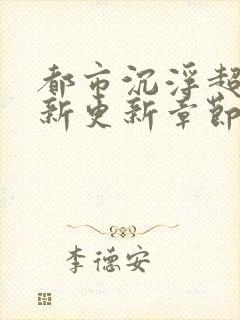 都市沉浮超
新更新章節
李德安